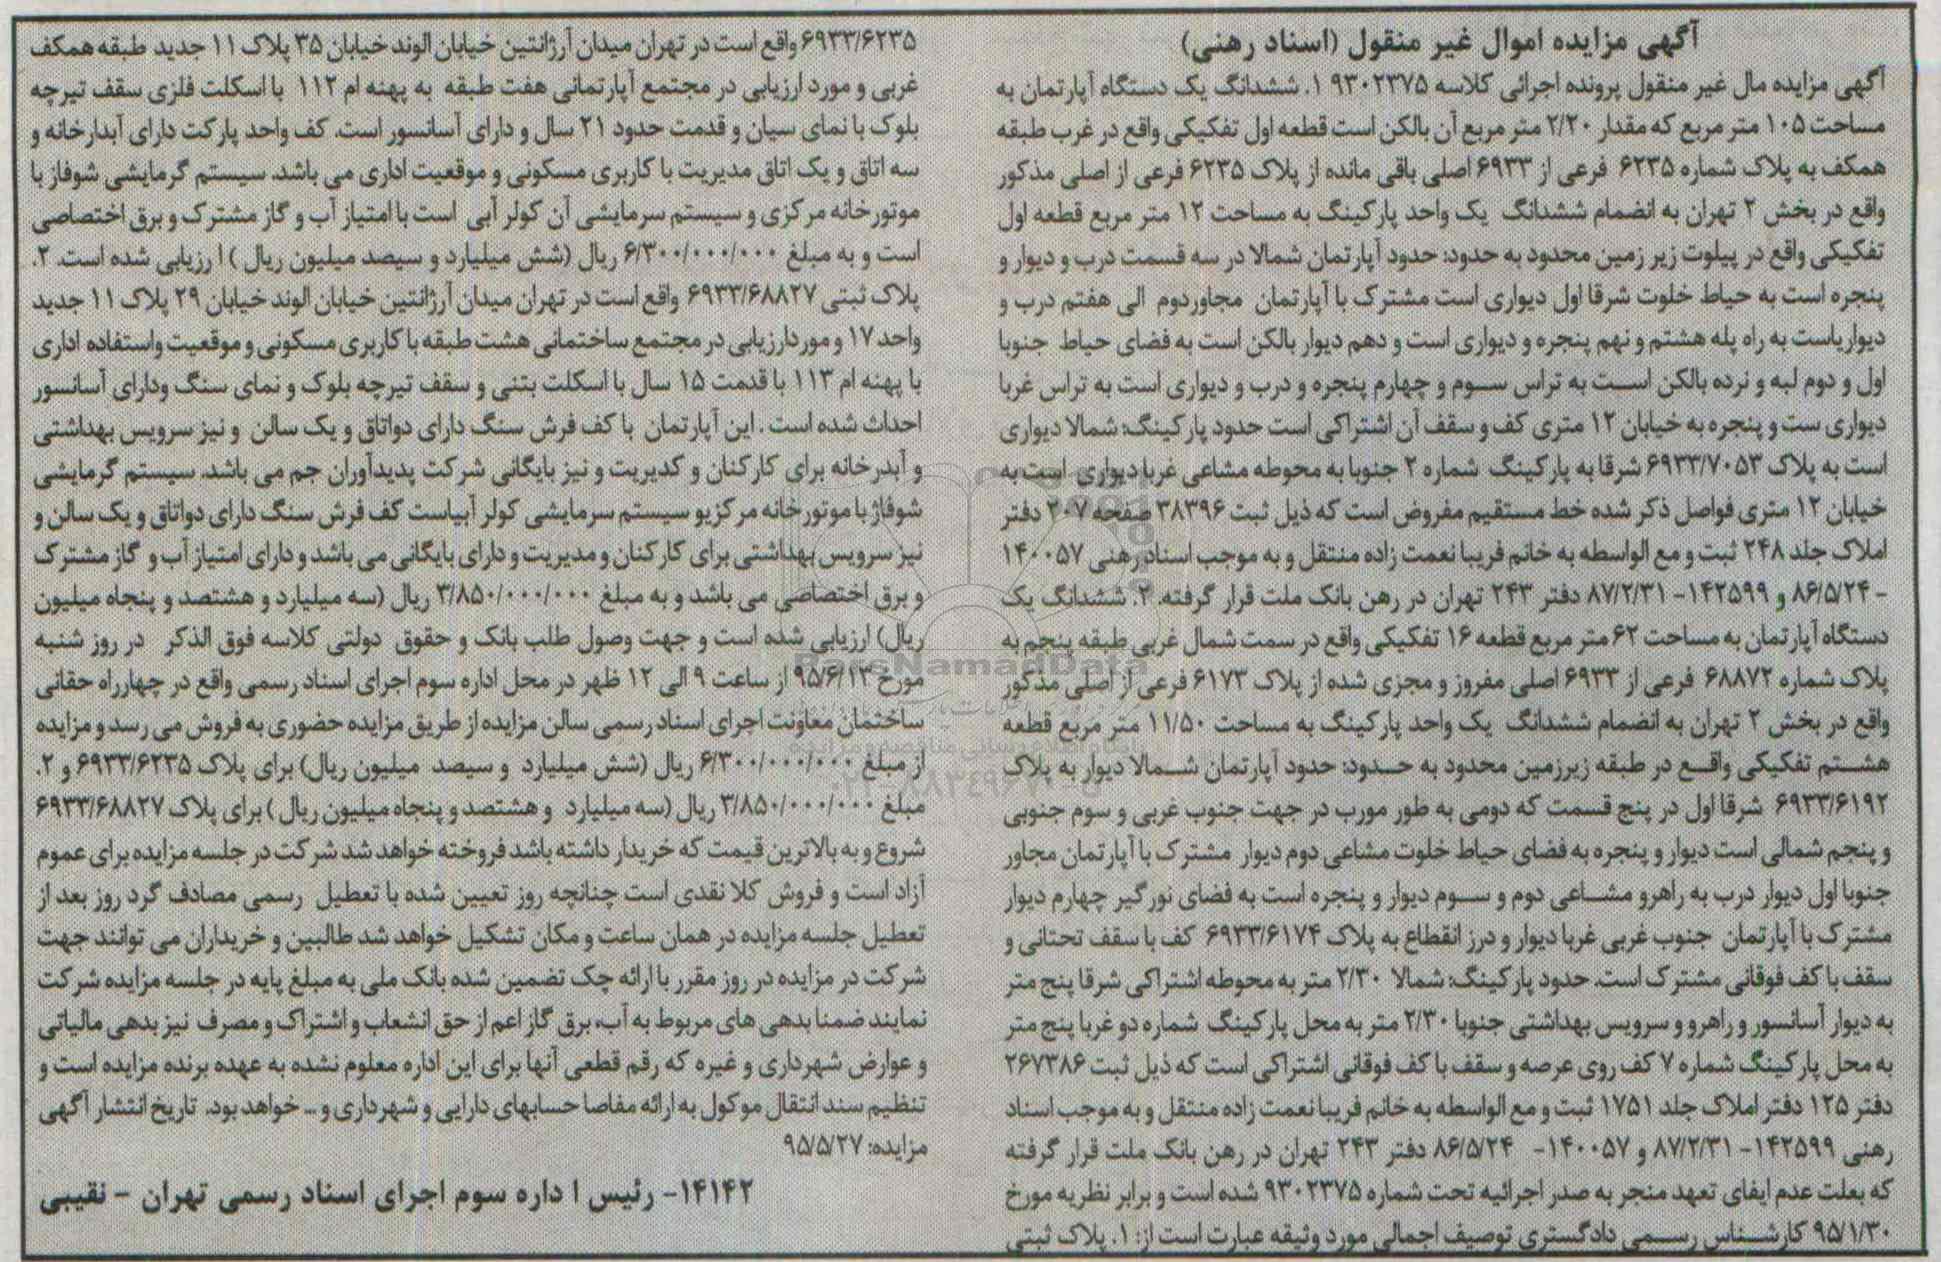 آگهی مزایده اموال غیر منقول (اسناد رهنی)
آگهی مزایده مال غیر منقول پرونده اجرائی کلاسه ۹۳۰۲۳۷۵ ۱. ششدانگ یک دستگاه آپارتمان به
مساحت ۱۰۵ متر مربع که مقدار ۲/۲۰ متر مربع آن بالکن است قطعه اول تفکیکی واقع در غرب طبقه
همکف به پلاک شماره ۶۲۳۵ فرعی از ۶۹۳۳ اصلی باقی مانده از پلاک ۶۲۳۵ فرعی از اصلی مذکور
واقع در بخش ۲ تهران به انضمام ششدانگ یک واحد پارکینگ به مساحت ۱۲ متر مربع قطعه اول
تفکیکی واقع در پیلوت زیر زمین محدود به حدود: حدود آپارتمان شمالا در سه قسمت درب و دیوار و
پنجره است به حیاط خلوت شرقا اول دیواری است مشترک با آپارتمان مجاوردوم الی هفتم درب و
دیواریاست به راه پله هشتم و نهم پنجره و دیواری است و دهم دیوار بالکن است به فضای حیاط جنوبا
اول و دوم لبه و نرده بالکن است به تراس سوم و چهارم پنجره و درب و دیواری است به تراس غربا
دیواری ست و پنجره به خیابان ۱۲ متری کف و سقف آن اشتراکی است حدود پارکینگ: شمالا دیواری
است به پلاک ۶۹۳۳/۷۰۵۳ شرقا به پارکینگ شماره ۲ جنوبا به محوطه مشاعی غربا دیواری است به
خیابان ۱۲ متری فواصل ذکر شده خط مستقیم مفروض است که ذیل ثبت ۳۸۳۹۶ صفحه ۲۰۷ دفتر
املاک جلد ۲۴۸ ثبت و مع الواسطه به خانم فریبا نعمت زاده منتقل و به موجب اسناد رهنی ۱۴۰۰۵۷
-۸۶/۵/۲۴ و ۱۴۲۵۹۹- ۸۷/۲/۳۱ دفتر ۲۴۳ تهران در رهن بانک ملت قرار گرفته. ۲. ششدانگ یک
دستگاه آپارتمان به مساحت ۶۲ متر مربع قطعه ۱۶ تفکیکی واقع در سمت شمال غربی طبقه پنجم به
پلاک شماره ۶۸۸۷۲ فرعی از ۶۹۳۳ اصلی مفروز و مجزی شده از پلاک ۶۱۷۳ فرعی از اصلی مذکور
واقع در بخش ۲ تهران به انضمام ششدانگ یک واحد پارکینگ به مساحت ۱۱/۵۰ متر مربع قطعه
هشتم تفکیکی واقع در طبقه زیرزمین محدود به حدود: حدود آپارتمان شمالا دیوار به پلاک
۶۹۳۳/۶۱۹۲ شرقا اول در پنج قسمت که دومی به طور مورب در جهت جنوب غربی و سوم جنوبی
و پنجم شمالی است دیوار و پنجره به فضای حیاط خلوت مشاعی دوم دیوار مشترک با آپارتمان مجاور
جنوبا اول دیوار درب به راهرو مشاعی دوم و سوم دیوار و پنجره است به فضای نورگیر چهارم دیوار
مشترک با آپارتمان جنوب غربی غربا دیوار و درز انقطاع به پلاک ۶۹۳۳/۶۱۷۴ کف با سقف تحتانی و
سقف با کف فوقانی مشترک است. حدود پارکینگ: شمالا ۲/۳۰ متر به محوطه اشتراکی شرقا پنج متر
به دیوار آسانسور و راهرو و سرویس بهداشتی جنوبا ۲/۳۰ متر به محل پارکینگ شماره دو غربا پنج متر
به محل پارکینگ شماره ۷ کف روی عرصه و سقف با کف فوقانی اشتراکی است که ذیل ثبت ۲۶۷۳۸۶
دفتر ۱۲۵ دفتر املاک جلد ۱۷۵۱ ثبت و مع الواسطه به خانم فریبا نعمت زاده منتقل و به موجب اسناد
رهنی ۱۴۲۵۹۹- ۸۷/۲/۳۱ و ۱۴۰۰۵۷- ۸۶/۵/۲۴ دفتر ۲۴۳ تهران در رهن بانک ملت قرار گرفته
که بعلت عدم ایفای تعهد منجر به صدر اجرائیه تحت شماره ۹۳۰۲۳۷۵ شده است و برابر نظریه مورخ
۹۵/۱/۳۰ کارشناس رسمی دادگستری توصیف اجمالی مورد وثیقه عبارت است از: ۱. پلاک ثبتی
۶۹۳۳/۶۲۳۵ واقع است در تهران میدان آرژانتین خیابان الوند خیابان ۳۵ پلاک ۱۱ جدید طبقه همکف
غربی و مورد ارزیابی در مجتمع آپارتمانی هفت طبقه به پهنه ام ۱۱۲ با اسکلت فلزی سقف تیرچه
بلوک با نمای سیان و قدمت حدود ۲۱ سال و دارای آسانسور است. کف واحد پارکت دارای آبدارخانه و
سه اتاق و یک اتاق مدیریت با کاربری مسکونی و موقعیت اداری می باشد. سیستم گرمایشی شوفاز با
موتورخانه مرکزی و سیستم سرمایشی آن کولر آبی است با امتیاز آب و گاز مشترک و برق اختصاصی
است و به مبلغ ۶/۳۰۰/۰۰۰/۰۰۰ ریال (شش میلیارد و سیصد میلیون ریال ) ا رزیابی شده است. ۲.
پلاک ثبتی ۶۹۳۳/۶۸۸۲۷ واقع است در تهران میدان آرژانتین خیابان الوند خیابان ۲۹ پلاک ۱۱ جدید
واحد ۱۷ و موردارزیابی در مجتمع ساختمانی هشت طبقه با کاربری مسکونی و موقعیت واستفاده اداری
با پهنه ام ۱۱۳ با قدمت ۱۵ سال با اسکلت بتنی و سقف تیرچه بلوک و نمای سنگ ودارای آسانسور
احداث شده است . این آپارتمان با کف فرش سنگ دارای دواتاق و یک سالن و نیز سرویس بهداشتی
و آبدرخانه برای کارکنان و کدیریت و نیز بایگانی شرکت پدیدآوران جم می باشد. سیستم گرمایشی
شوفاژ با موتورخانه مرکزیو سیستم سرمایشی کولر آبیاست کف فرش سنگ دارای دواتاق و یک سالن و
نیز سرویس بهداشتی برای کارکنان و مدیریت و دارای بایگانی می باشد و دارای امتیاز آب و گاز مشترک
و برق اختصاصی می باشد و به مبلغ ۳/۸۵۰/۰۰۰/۰۰۰ ریال (سه میلیارد و هشتصد و پنجاه میلیون
ریال) ارزیابی شده است و جهت وصول طلب بانک و حقوق دولتی کلاسه فوق الذکر در روز شنبه
مورخ ۹۵/۶/۱۳ از ساعت ۹ الی ۱۲ ظهر در محل اداره سوم اجرای اسناد رسمی واقع در چهارراه حقانی
ساختمان معاونت اجرای اسناد رسمی سالن مزایده از طریق مزایده حضوری به فروش می رسد و مزایده
از مبلغ ۶/۳۰۰/۰۰۰/۰۰۰ ریال (شش میلیارد و سیصد میلیون ریال) برای پلاک ۶۹۳۳/۶۲۳۵ و ۲.
مبلغ ۳/۸۵۰/۰۰۰/۰۰۰ ریال (سه میلیارد و هشتصد و پنجاه میلیون ریال ) برای پلاک ۶۹۳۳/۶۸۸۲۷
شروع و به بالاترین قیمت که خریدار داشته باشد فروخته خواهد شد شرکت در جلسه مزایده برای عموم
آزاد است و فروش کلا نقدی است چنانچه روز تعیین شده با تعطیل رسمی مصادف گرد روز بعد از
تعطیل جلسه مزایده در همان ساعت و مکان تشکیل خواهد شد طالبین و خریداران می توانند جهت
شرکت در مزایده در روز مقرر با ارائه چک تضمین شده بانک ملی به مبلغ پایه در جلسه مزایده شرکت
نمایند ضمنا بدهی های مربوط به آب، برق گاز اعم از حق انشعاب و اشتراک و مصرف نیز بدهی مالیاتی
و عوارض شهرداری و غیره که رقم قطعی آنها برای این اداره معلوم نشده به عهده برنده مزایده است و
تنظیم سند انتقال موکول به ارائه مفاصا حسابهای دارایی و شهرداری و ... خواهد بود. تاریخ انتشار آگهی
مزایده: ۹۵/۵/۲۷
۱۴۱۴۲- رئیس ا داره سوم اجرای اسناد رسمی تهران - نقیبی
ParsNamadData
پایگاه اطلاع رسانی مناقصه و مزایده
۰۲۱-۸۸۳۴۹۶۷۰-۵